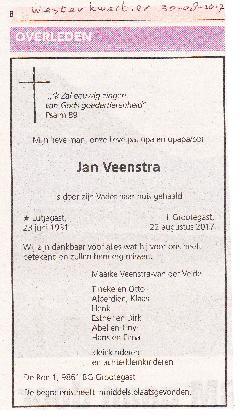 8 Westerkwartier 30-08-2017
OVERLEDEN
„Ik zal eeuwig zingen
van Gods goedertierenheid”
Psalm 89
Mijn lieve man, onze lieve pa, opa en
Jan Veenstra
is door zijn Vader naar huis gehaald
★ Lutjegast, † Grootegast,
23 juni 1931 22 augustus 2017
Wij zijn dankbaar voor alles wat hij voor ons heeft
betekend en zullen hem erg missen.
Maaike Veenstra-van der Velde
Tineke en Otto
Klaas
Henk
Esther en Dirk
Abel en Tiny
Hans en
kleinkinderen
en achterkleinkinderen
De Kor 1, 9861 BG Grootegast
De begrafenis heeft inmiddels plaatsgevonden.